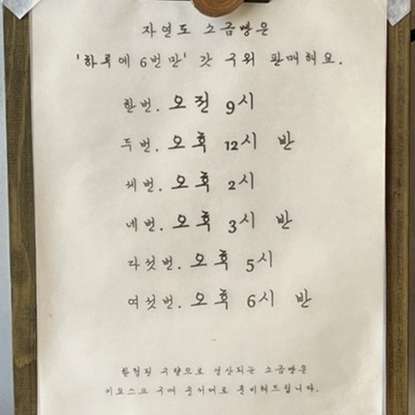 자연도 소금빵은
'하루에 6번만' 갓 구워 판매해요.
한번. 오전 9시
두번. 오후 12시 반
세번. 오후 2시
네번. 오후 3시 반
다섯번. 오후 5시
여섯번. 오후 6시 반
한정된 수량으로 생산되는 소금빵은
키오스크 구매 순서대로 준비해드립니다.